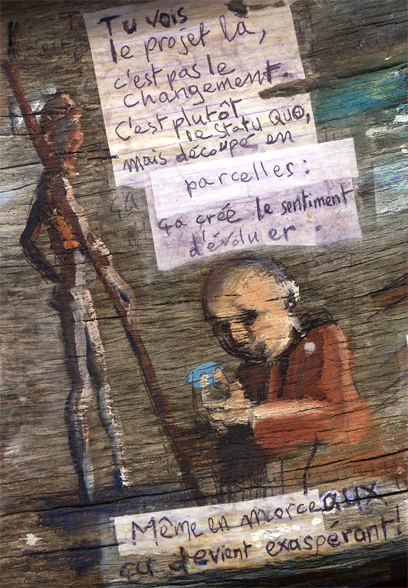 Tu vois
le projet là,
c'est pas le
changement.
C'est plutôt
le statu quo,
mais découpé en
parcelles:
ça crée le sentiment
d'évoluer.
Même en morceaux
ça devient exaspérant!